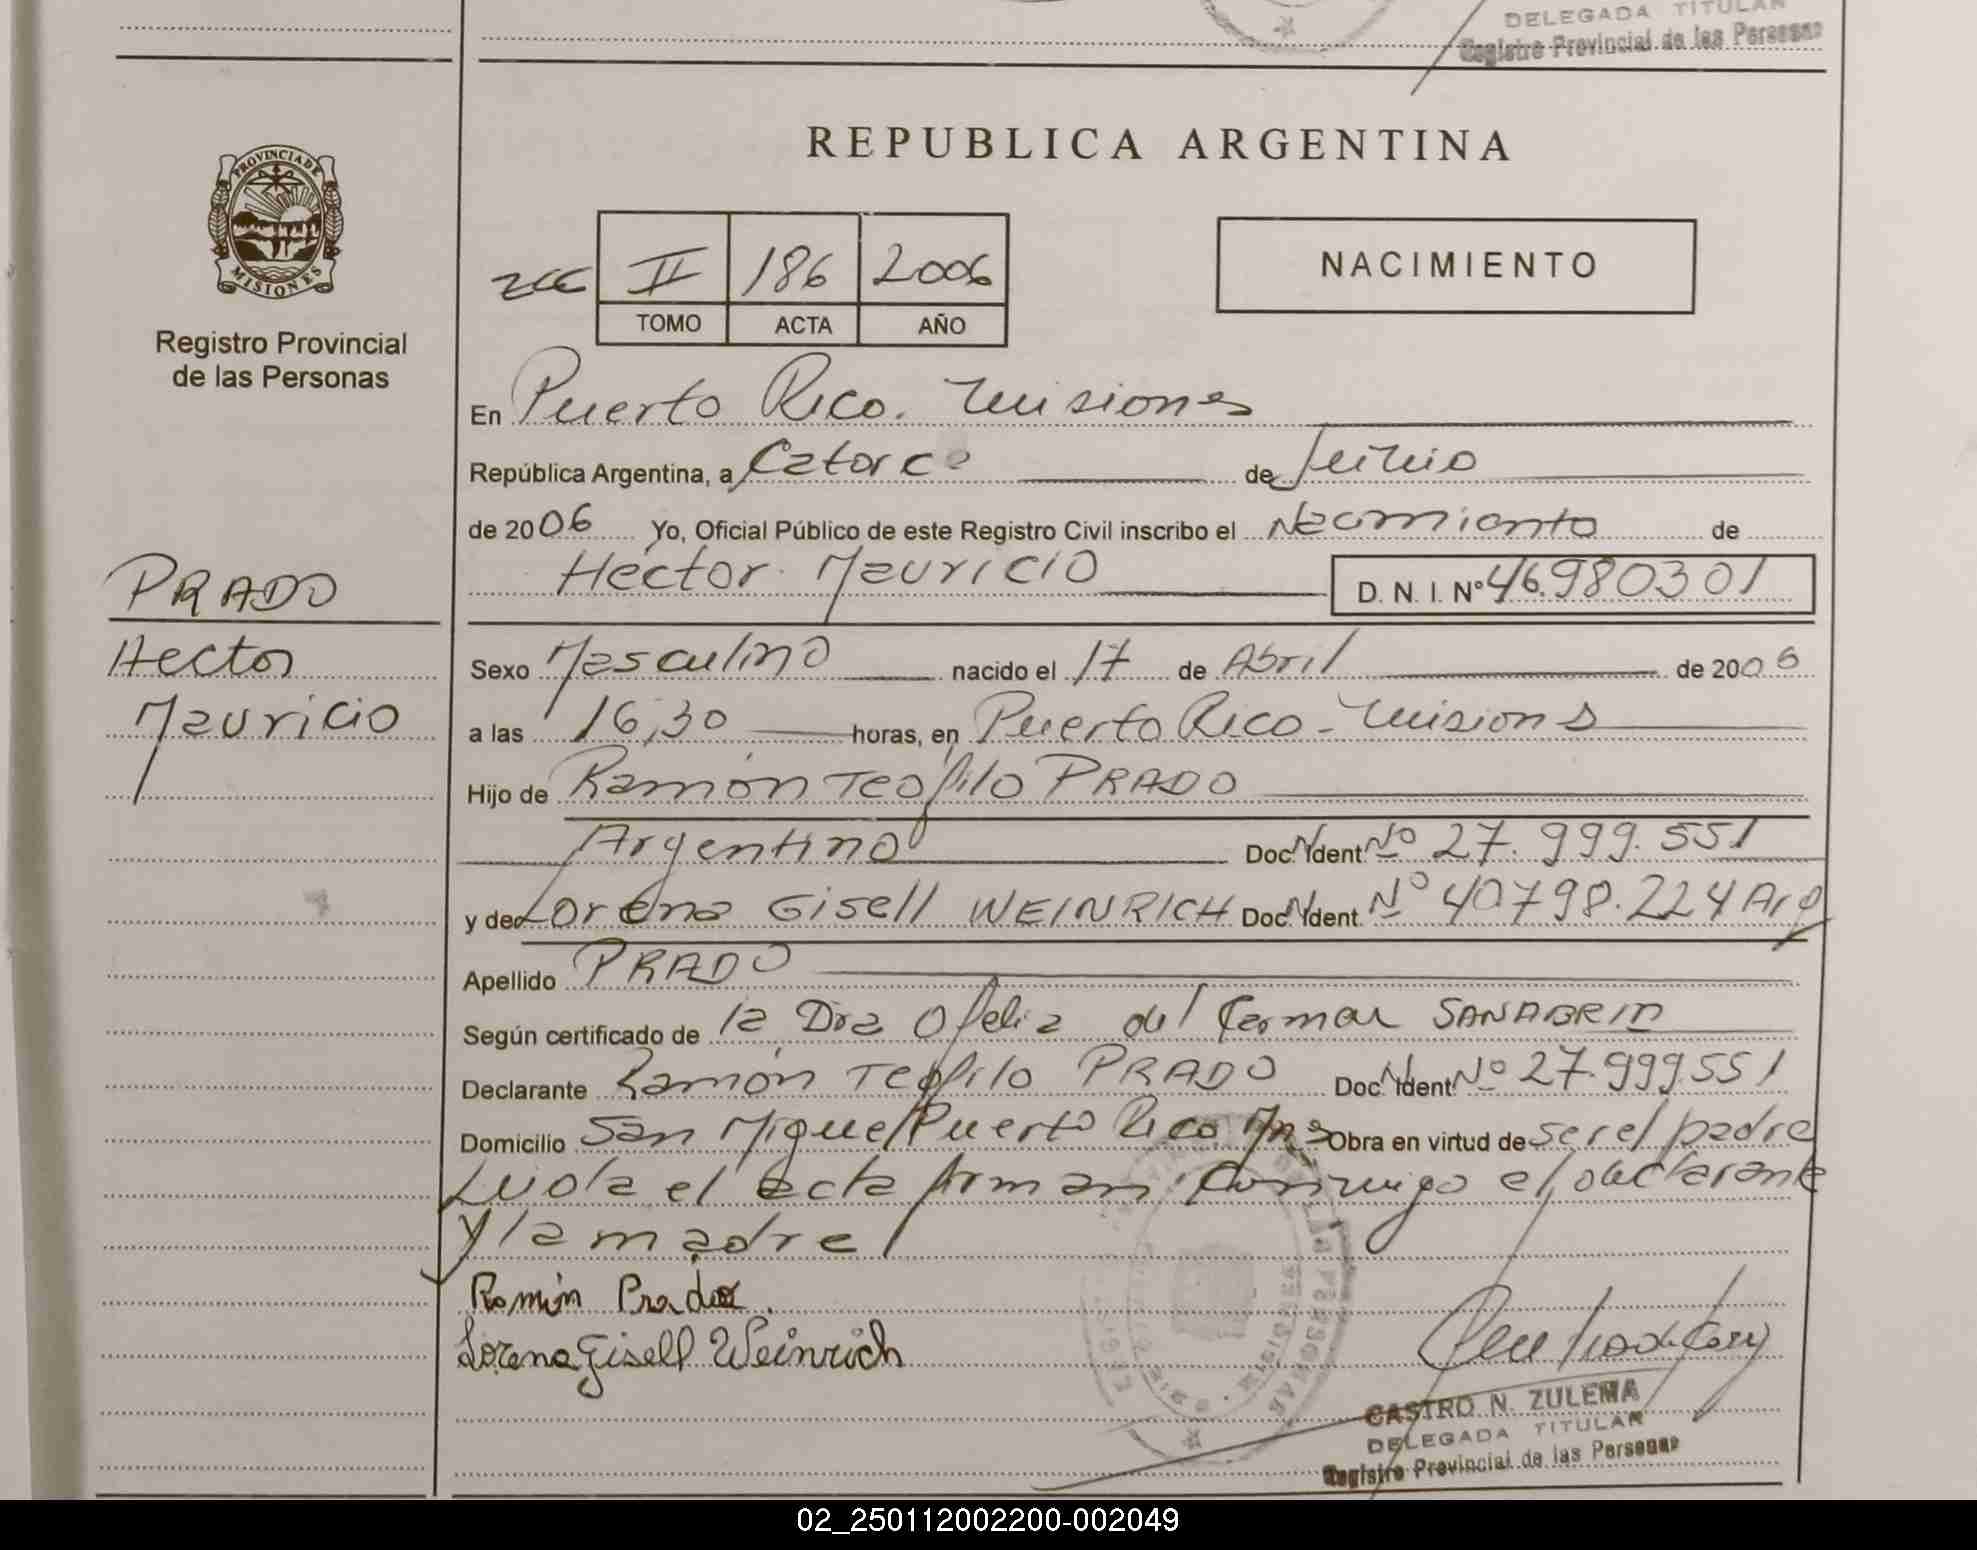 DELEGADA TITULAR
Registro Provincial de las Personas
REPUBLICA ARGENTINA
PROVINCIA DE
MISIONES
II 186 2006
TOMO ACTA AÑO
NACIMIENTO
Registro Provincial
de las Personas
En Puerto Rico. Misiones
República Argentina, a Catorce de Junio
de 2006 Yo, Oficial Público de este Registro Civil inscribo el Nacimiento de
Hector Mauricio D. N. I. Nº 46.980301
PRADO
Hector
Mauricio
Sexo Masculino nacido el 17 de Abril de 2006
a las 16,30 horas, en Puerto Rico - Misions
Hijo de Ramón Teofilo PRADO
Argentino Doc. Ident. Nº 27.999.551
y de Lorena Gisell WEINRICH Doc. Ident. Nº 40798.224 Arg
Apellido PRADO
Según certificado de la Dra Ofelia del Carmen SANABRIA
Declarante Ramón Teofilo PRADO Doc. Ident. Nº 27.999551
Domicilio San Miguel Puerto Rico Mnes Obra en virtud de ser el padre
Leida el acta firman conmigo el declarante
y la madre
Ramón Prado.
Lorena Gisell Weinrich
CASTRO N. ZULEMA
DELEGADA TITULAR
Registro Provincial de las Personas
02_250112002200-002049